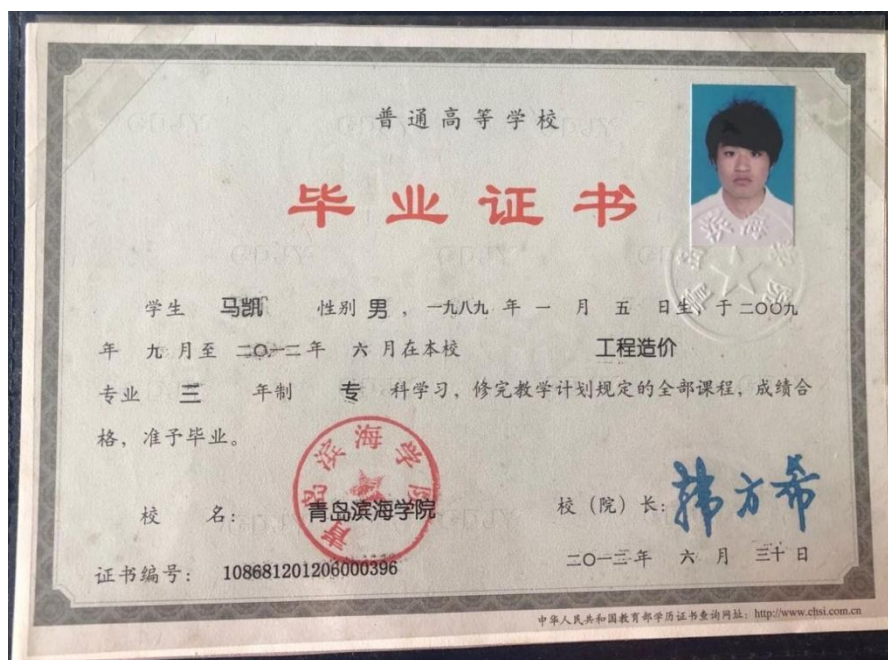 普通高等学校
毕业证书
学生 马凯 性别 男 ，一九八九 年 一 月 五 日生，于 二〇〇九
年 九 月至 二〇一二 年 六 月在本校 工程造价
专业 三 年制 专 科学习，修完教学计划规定的全部课程，成绩合
格，准予毕业。
青岛滨海学院
校 名： 青岛滨海学院
校（院）长： 韩方希
证书编号： 108681201206000396
二〇一二 年 六 月 三十 日
中华人民共和国教育部学历证书查询网址：http://www.chsi.com.cn